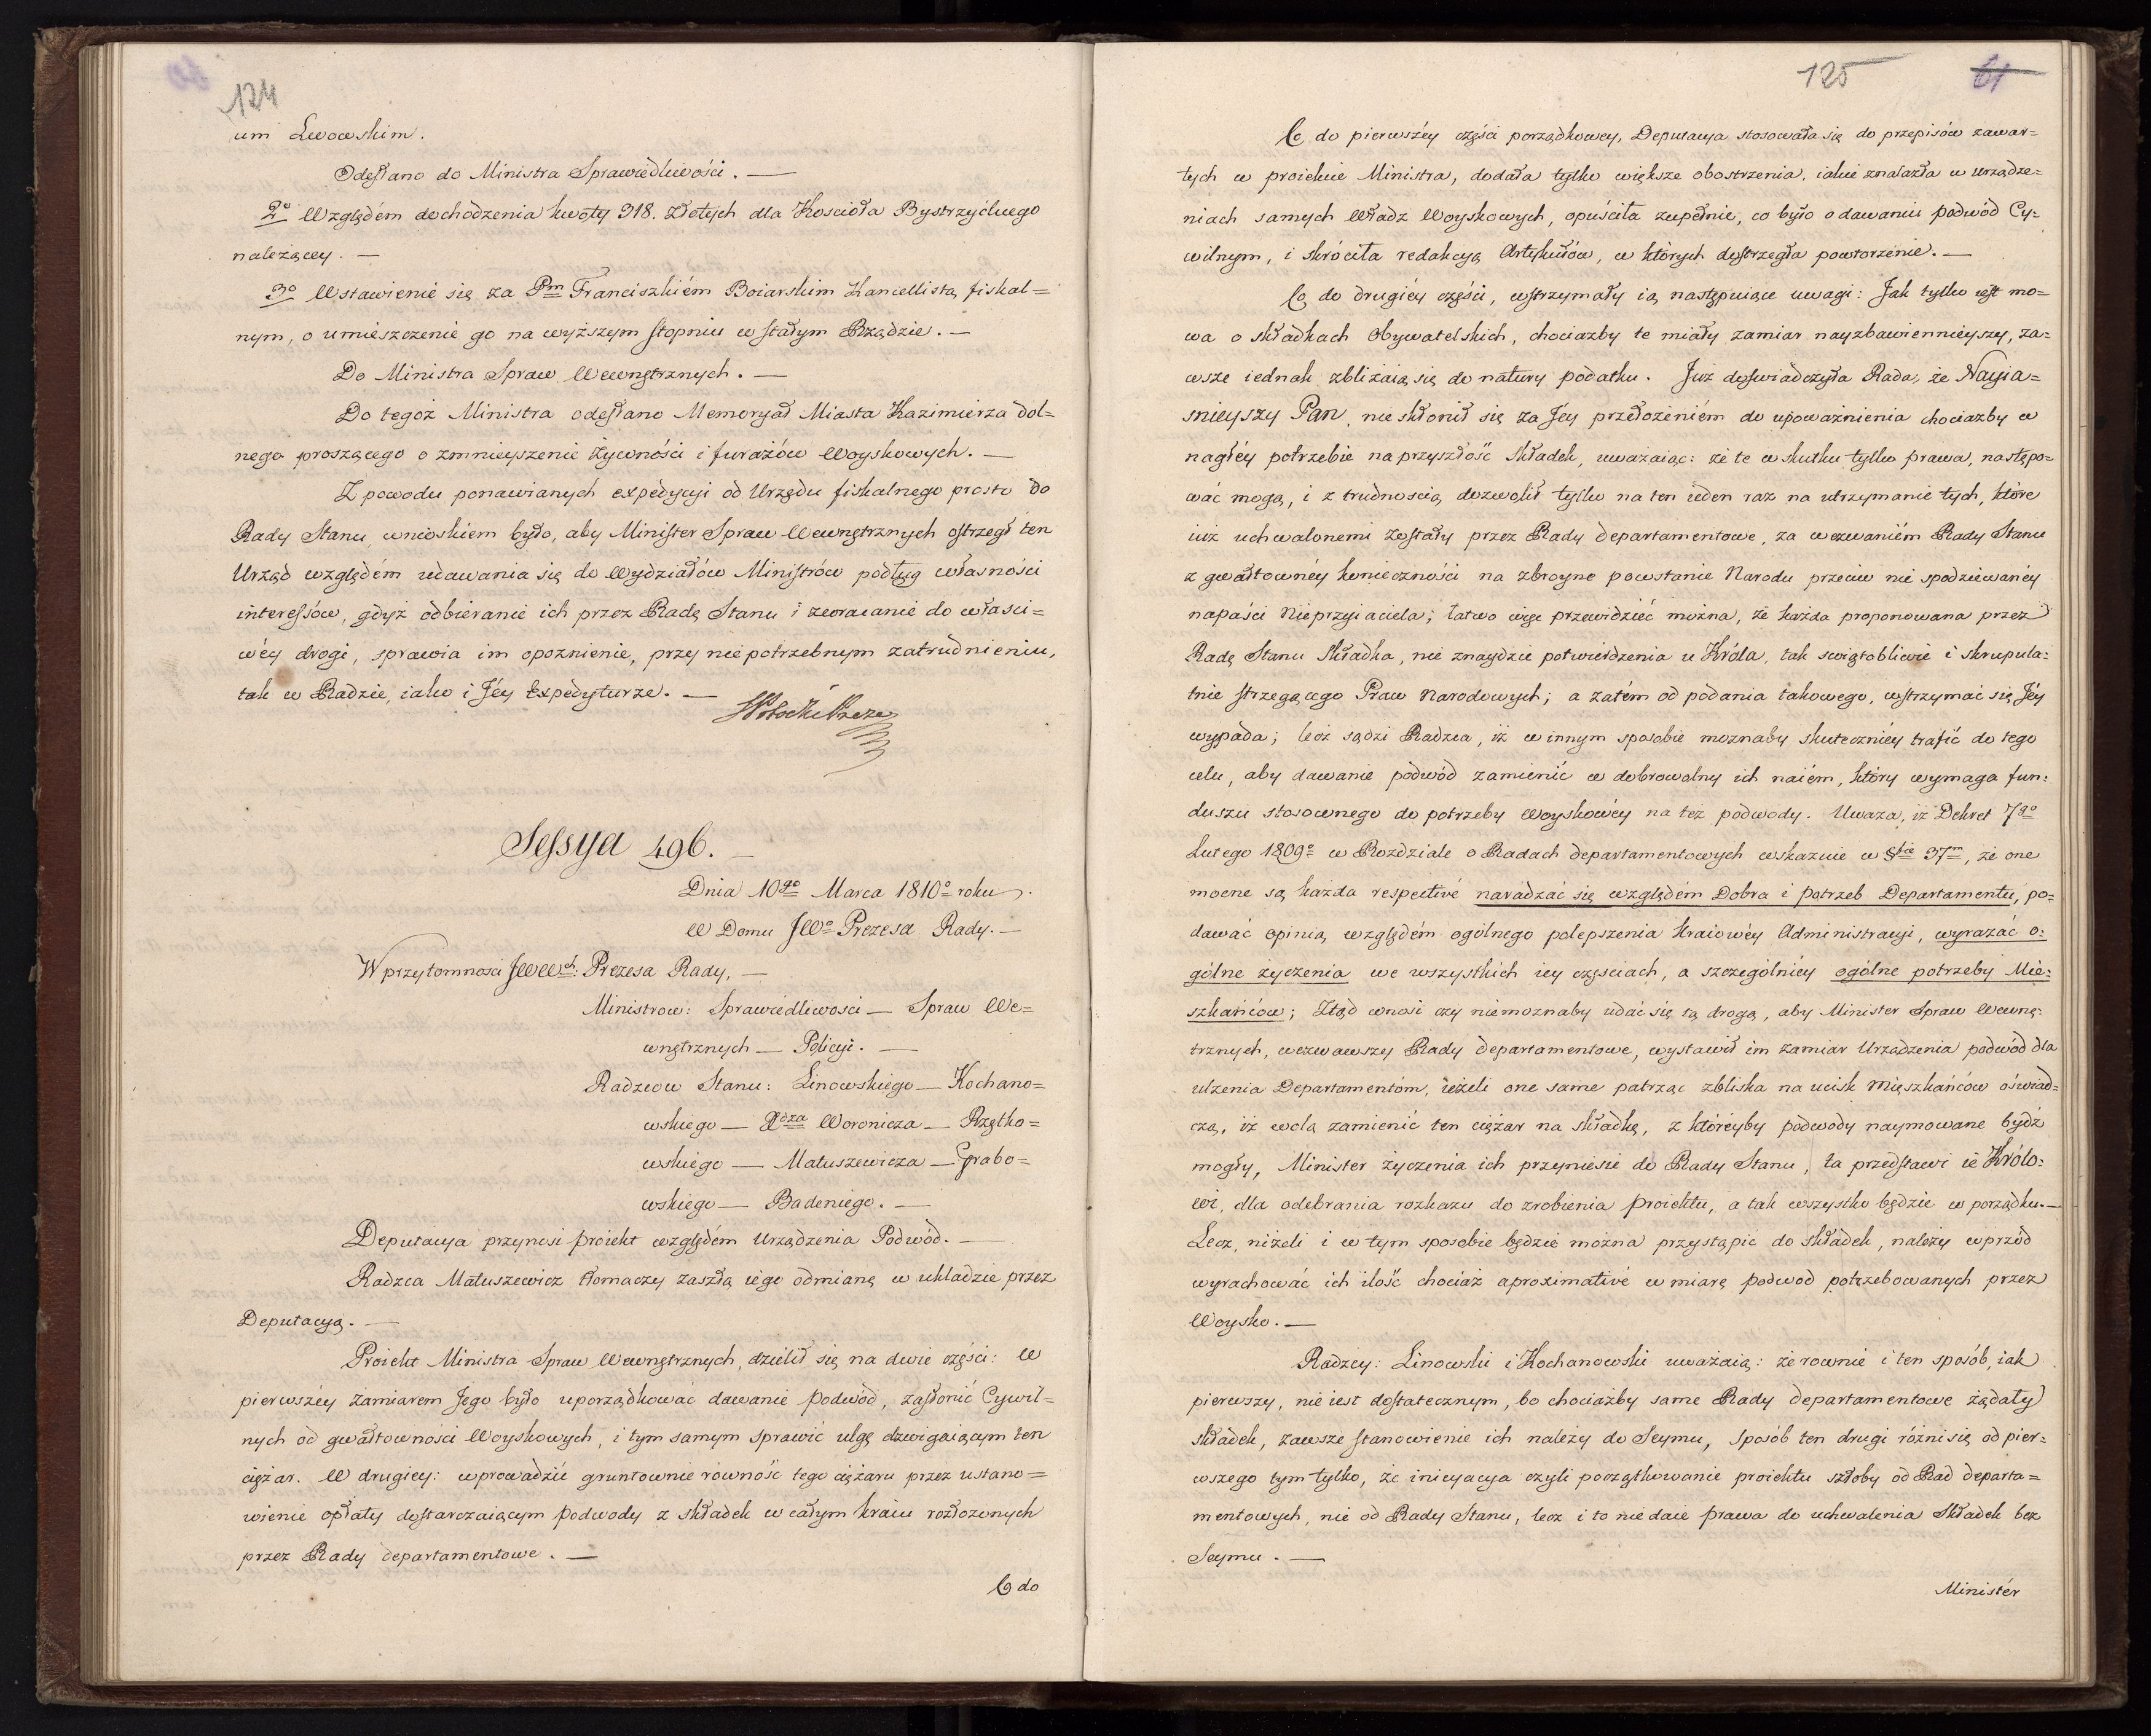 124
um Lwowskim.
Odesłano do Ministra Sprawiedliwości. —
2º Względém dochodzenia kwoty 918. Złotych dla Koscioła Bystrzyckiego
należącey. —
3º Wstawienie się za Pm Franciszkiém Boiarskim Kancellistą fiskal=
nym, o umieszczenie go na wyższym stopniu w stałym Rządzie. —
Do Ministra Spraw Wewnętrznych. —
Do tegoż Ministra odesłano Memoryał Miasta Kazimierza dol=
nego proszącego o zmnieyszenie żywności i furażów Woyskowych. —
Z powodu ponawianych expedycyi od Urzędu fiskalnego prosto do
Rady Stanu, wnioskiem było, aby Minister Spraw Wewnętrznych ostrzegł ten
Urząd względém udawania się do Wydziałów Ministrów podług własności
interessów, gdyż odbieranie ich przez Radę Stanu i zwracanie do właści=
wéy drogi, sprawia im opoznienie, przy niepotrzebnym zatrudnieniu,
tak w Radzie, iako i Jéy Expedyturze. —
Sessya 496. —
Dnia 10go Marca 1810º roku.
W Domu JWo Prezesa Rady. —
W przytomnosci JWWch: Prezesa Rady, —
Ministrow: Sprawiedliwosci — Spraw We=
wnętrznych — Policyi. —
Radzców Stanu: Linowskiego — Kochano=
wskiego — Xdza Woronicza — Rzętko=
wskiego — Matuszewicza — Grabo=
wskiego — Badeniego. —
Deputacya przynosi proiekt względém Urządzenia Podwód. —
Radzca Matuszewicz tłomaczy zaszłą iego odmianę w układzie przez
Deputacyą. —
Proiekt Ministra Spraw Wewnętrznych, dzielił się na dwie części: W
pierwszéy zamiarem Jego było uporządkować dawanie podwód, zasłonić Cywil=
nych od gwałtowności Woyskowych, i tym samym sprawić ulgę dzwigaiącym ten
ciężar. W drugiey: wprowadzić gruntownie równość tego ciężaru przez ustano=
wienie opłaty dostarczaiącym podwody z składek w całym kraiu rozłożonych
przez Rady departamentowe. —
Co do
125 61
Co do pierwszéy części porządkowey, Deputacya stosowała się do przepisów zawar=
tych w proiekcie Ministra, dodała tylko większe obostrzenia, iakie znalazła w urządze=
niach samych Władz Woyskowych, opuściła zupełnie, co było o dawaniu podwód Cy=
wilnym, i skróciła redakcyą Artykułów, w których dostrzegła powtorzenie. —
Co do drugiéy części, wstrzymały ią następuiące uwagi: Jak tylko iest mo=
wa o składkach Obywatelskich, chociazby te miały zamiar nayzbawiennieyszy, za=
wsze iednak zbliżaią się do natury podatku. Już doświadczyła Rada, że Nayia=
snieyszy Pan, nie skłonił się za Jéy przełożeniém do upoważnienia chociazby w
nagłéy potrzebie na przyszłość składek, uważaiąc: że te w skutku tylko prawa, następo=
wać mogą, i z trudnoscią dozwolił tylko na ten ieden raz na utrzymanie tych, które
iuż uchwalonemi zostały przez Rady departamentowe, za wezwaniém Rady Stanu
z gwałtownéy konieczności na zbroyne powstanie Narodu przeciw nie spodziewanéy
napaści Nieprzyiaciela; łatwo więc przewidzieć można, że każda proponowana przez
Radę Stanu Składka, nie znaydzie potwierdzenia u Króla, tak swiątobliwie i skrupula=
tnie strzegącego Praw Narodowych; a zatém od podania takowego, wstrzymać się Jéy
wypada; lecz sądzi Radzca, iż w innym sposobie moznaby skuteczniéy trafić do tego
celu, aby dawanie podwód zamienić w dobrowolny ich naiém, który wymaga fun=
duszu stosownego do potrzeby Woyskowéy na też podwody. Uważa, iż Dekret 7go
Lutego 1809º w Rozdziale o Radach departamentowych wskazuie w §fie 37m, że one
mocne są każda respectivé naradzać się względém Dobra i potrzeb Departamentu, po=
dawać opinią względém ogólnego polepszenia kraiowéy Administracyi, wyrażać o=
gólne życzenia we wszystkich iey częsciach, a szczególniéy ogólne potrzeby Mie=
szkańców; Ztąd wnosi czy niemoznaby udać się tą drogą, aby Minister Spraw Wewnę=
trznych, wezwawszy Rady departamentowe, wystawił im zamiar Urządzenia podwód dla
ulżenia Departamentóm, ieżeli one same patrząc zbliska na ucisk Mieszkańców oświad=
czą, iż wolą zamienić ten ciężar na składkę, z któréyby podwody naymowane bydź
mogły, Minister życzenia ich przyniesie do Rady Stanu, ta przedstawi ie Królo=
wi, dla odebrania rozkazu do zrobienia proiektu, a tak wszystko będzie w porządku. —
Lecz, niżeli i w tym sposobie będzie można przystąpić do składek, należy wprzód
wyrachować ich ilość chociaż aproximativé w miarę podwod potrzebowanych przez
Woysko. —
Radzcy: Linowski i Kochanowski uważaią: że rownie i ten sposób, iak
pierwszy, nie iest dostatecznym, bo chociażby same Rady departamentowe żądały
składek, zawsze stanowienie ich należy do Seymu, Sposób ten drugi różni się od pier=
wszego tym tylko, że inicyacya czyli początkowanie proiektu szłoby od Rad departa=
mentowych, nie od Rady Stanu, lecz i to nie daie prawa do uchwalenia Składek bez
Seymu. —
Ministér